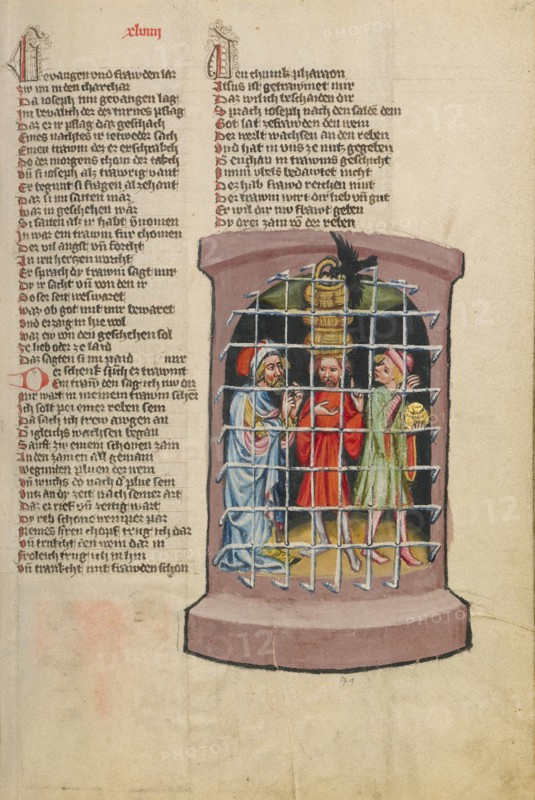 xlviiij
48
Gevangen vnd frawden lar
Da ioseph im gevangen lag
Im bevalch der des turnes pflag
Daz er ir pflag daz geschach
Eines nachtes ir ietweder sach
Einen trawm der er erschrakch
Do der morgens chom der takch
Vn si ioseph als trawrig vant
Er begunt si fragen alzehant
Daz si im saiten mær
Waz in geschehen wær
Si saiten alz ir habt vernomen
In wær ein trawm fur chomen
Der vil angst vn forcht
In irn hertzen worcht
Er sprach dy trawm sagt mir
Dy ir sacht vn von den ir
So ser seit
waz ob got mit mir bewaret
Vnd erzaig in hie wol
waz ew von den geschehen sol
Ze lieb oder ze laid
Daz sagten si im paid mir
Der schenk sprach er trawmt
Den trawm den sag ich nw dir
Mir wart in meinem trawm scher
Ich solt pei einer reben sein
Da sach ich drew awgen an
Di gleichs wachsen began
Sanft zw einem schonen zam
In den zamen all gemain
Vegunden pluen der wein
Vn wuchs do nach d plue sein
Vntz an dy zeit nach seiner art
Daz er rief vn zeitig wart
Dy reb schone wemper par
Meines herren chopf trug ich dar
Vn trucht den wein dar in
Froleich trug ich in hin
Vn trankcht mit frawden schon
Den chunik pharaon
Alsus ist getrawmet mir
Daz wil ich beschaiden dir
Sprach ioseph nach den salde dein
Got lat ze frawden den wein
Der werlt wachsen an den reben
Vnd hat in vns ze nutz gegeben
Swem auch in trawms geschicht
Nimm vbels bedawtet nicht
Der hab frawd reichen mut
Der trawm wirt dir lieb vn gut
Er wil dir nw frawt geben
Dy drey zam von der reben
PHOTO12